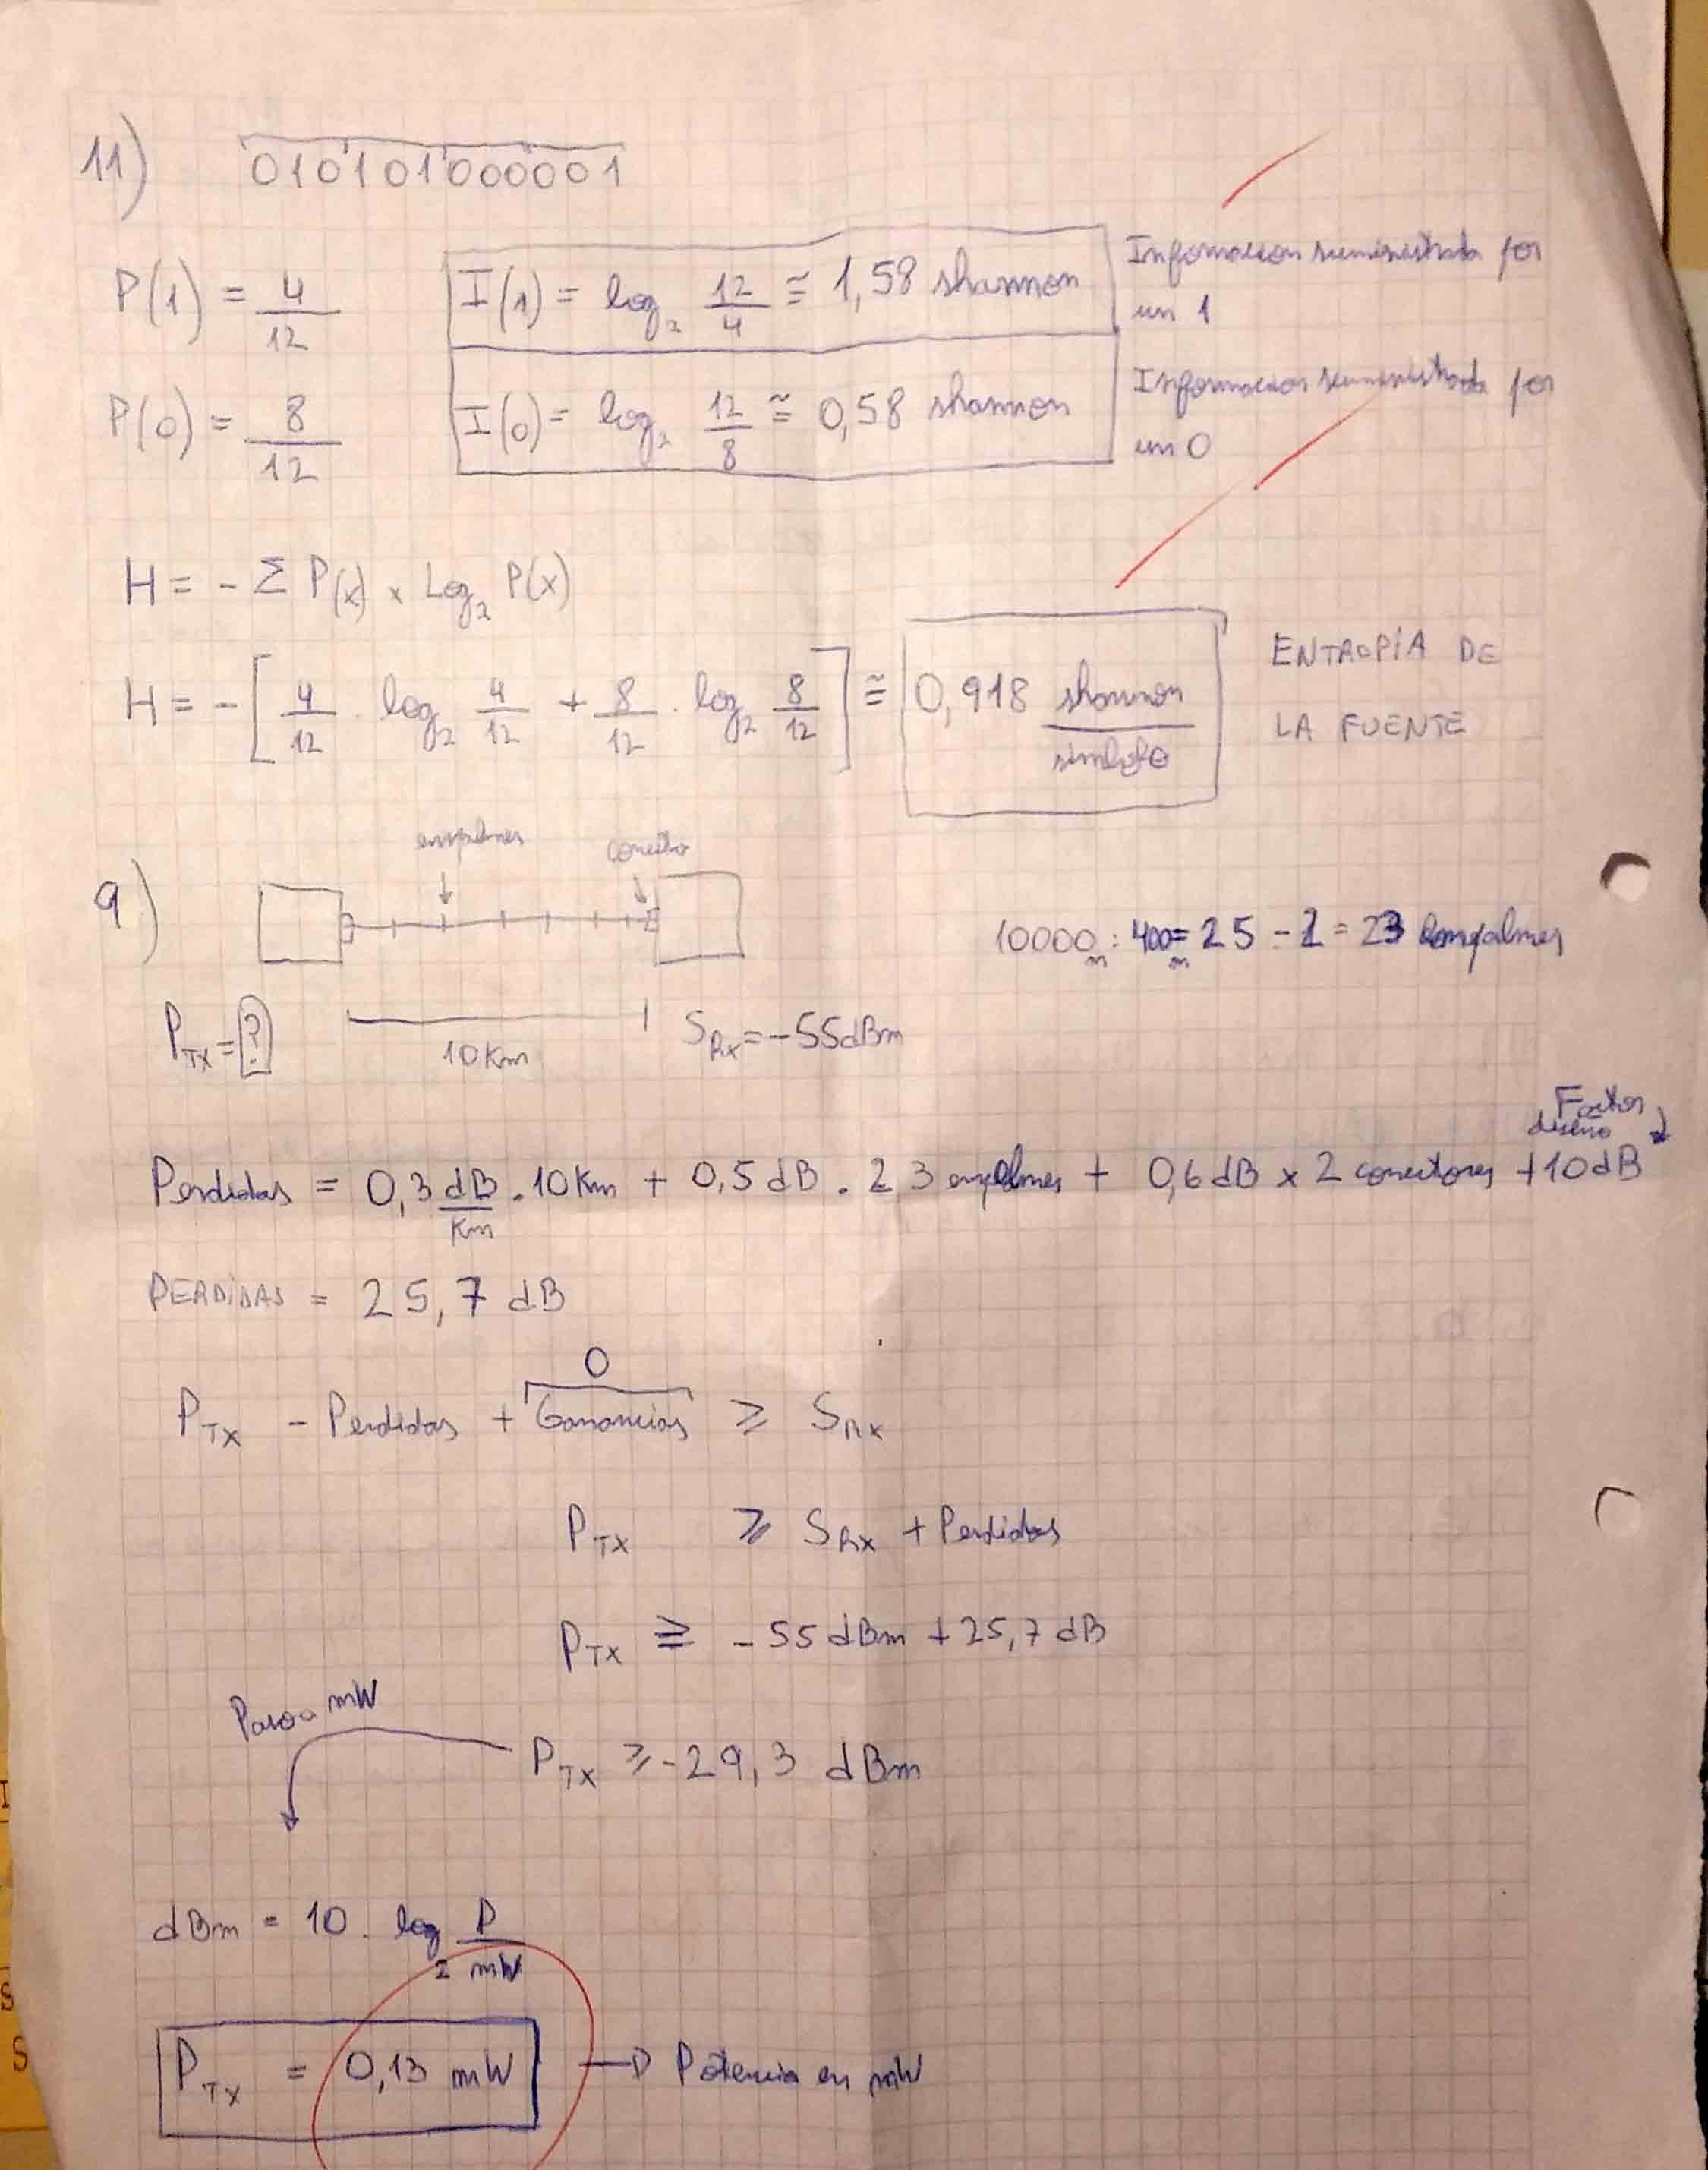 11) 010101000001
P(1) = 4/12 I(1) = log₂ 12/4 ≅ 1,58 shannon Informacion suministrada por un 1
P(0) = 8/12 I(0) = log₂ 12/8 ≅ 0,58 shannon Informacion suministrada por un 0
H = - Σ P(x) × Log₂ P(x)
H = -[4/12 . log₂ 4/12 + 8/12 . log₂ 8/12] ≅ 0,918 shannon/simbolo ENTROPIA DE
LA FUENTE
9) empalmes conector
10000 m : 400 m = 25 - 2 = 23 empalmes
P_TX = ? 10 Km S_Rx = -55 dBm
Factor
diseño
Perdidas = 0,3 dB/Km . 10 Km + 0,5 dB . 23 empalmes + 0,6 dB x 2 conectores + 10 dB
PERDIDAS = 25,7 dB
0
P_TX - Perdidas + Ganancias ≥ S_Rx
P_TX ≥ S_Rx + Perdidas
P_TX ≥ -55 dBm + 25,7 dB
Paso a mW
P_TX ≥ -29,3 dBm
dBm = 10 . log₂ P/mW
P_TX = 0,13 mW → Potencia en mW